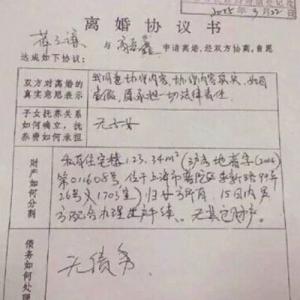 离婚协议书
2015年3月22日
与 申请离婚,经双方协商,自愿
达成如下协议:
双方对离婚的
真实意思表示
我同意协议内容,协议内容真实,如有
虚假,愿承担一切法律责任。
子女抚养关系
如何确立,抚
养费如何承担
无子女
财产如何分割
私有住宅楼123.34m²(沪房地
第011608号,位于上海市
26号 1703室)归女方所有,15日内男
方配合办理过户手续。无其它财产。
债务如何处理
无债务